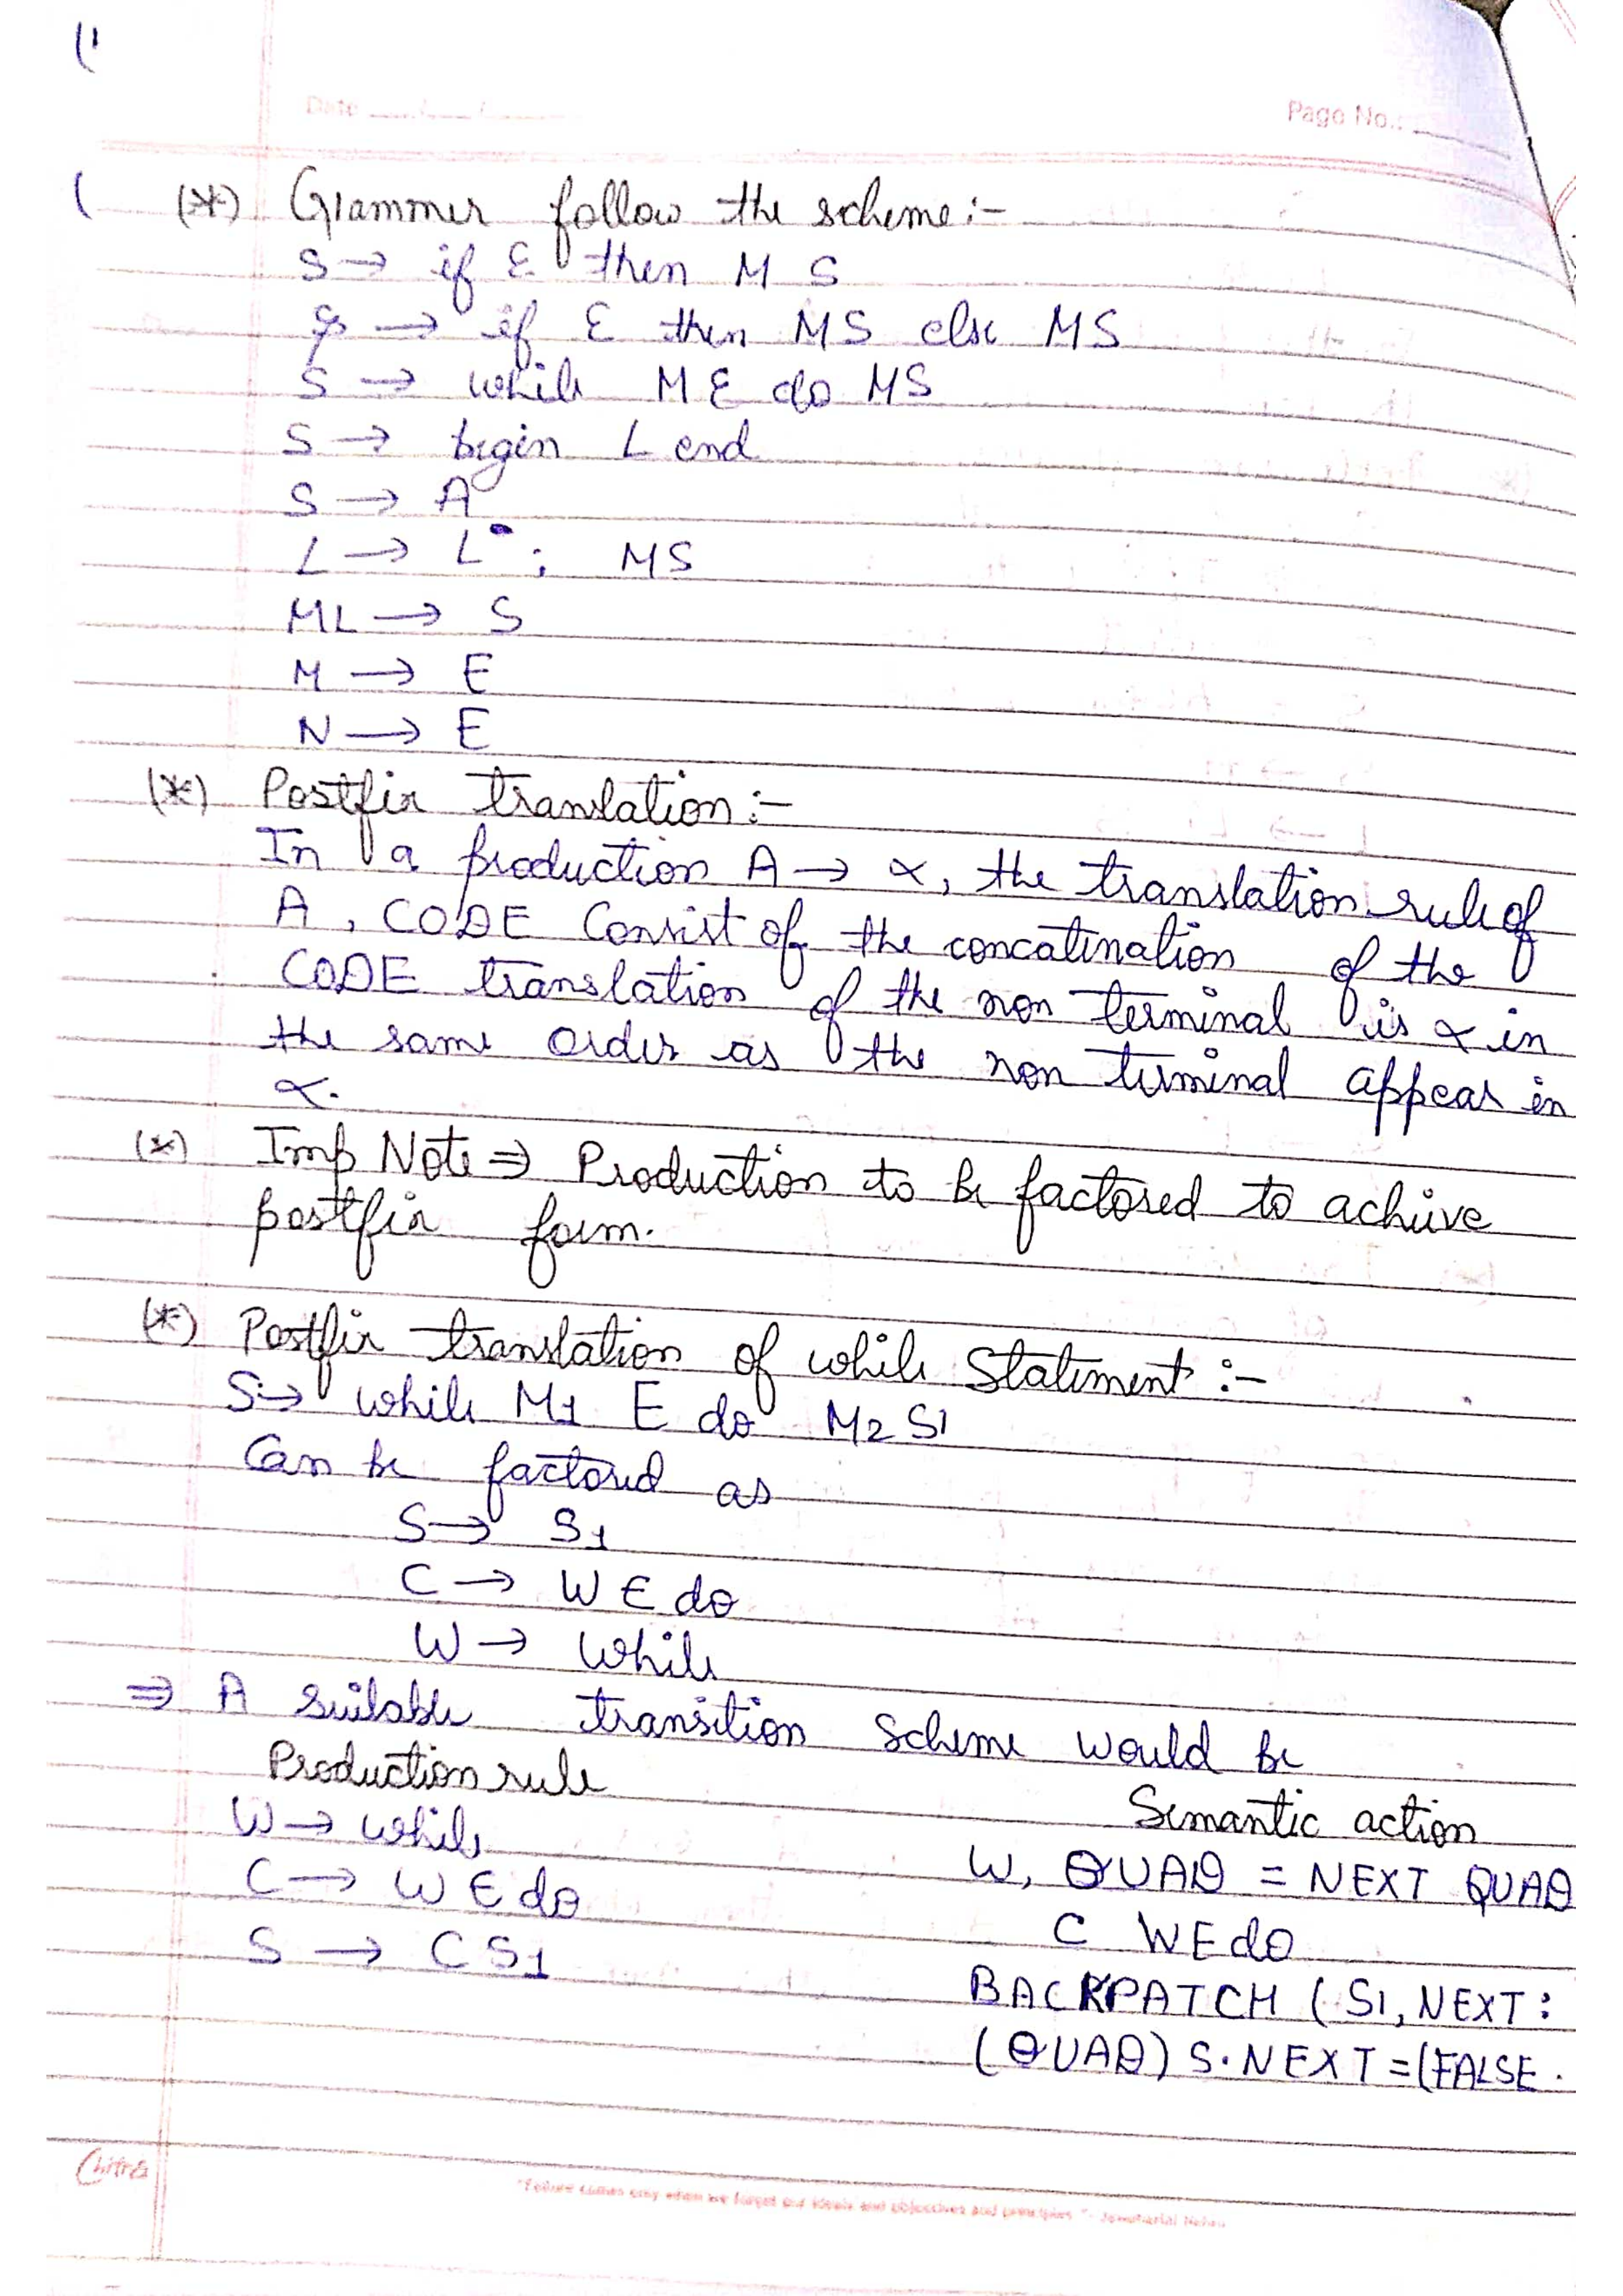 Date
Page No.:
(*) Grammer follow the scheme :-
S → if E then M S
S → if E then MS else MS
S → while M E do MS
S → begin L end
S → A
L → L ; MS
ML → S
M → E
N → E
(*) Postfix translation :-
In a production A → α, the translation rule of
A, CODE Consist of the concatination of the
CODE translation of the non terminal is α in
the same order as the non terminal appear in
α.
(*) Imp Note ⇒ Production to be factored to achive
postfix form.
(*) Postfix translation of while Statement :-
S → while M1 E do M2 S1
Can be factored as
S → S1
C → W E do
W → While
⇒ A suilable transition Scheme would be
Production rule
Semantic action
W → while
W, QUAD = NEXT QUAD
C → W E do
C WEdo
S → C S1
BACKPATCH (S1, NEXT :
(QUAD) S.NEXT = (FALSE .
Chitra
"Failure comes only when we forget our ideals and objectives and principles." - Jawaharlal Nehru